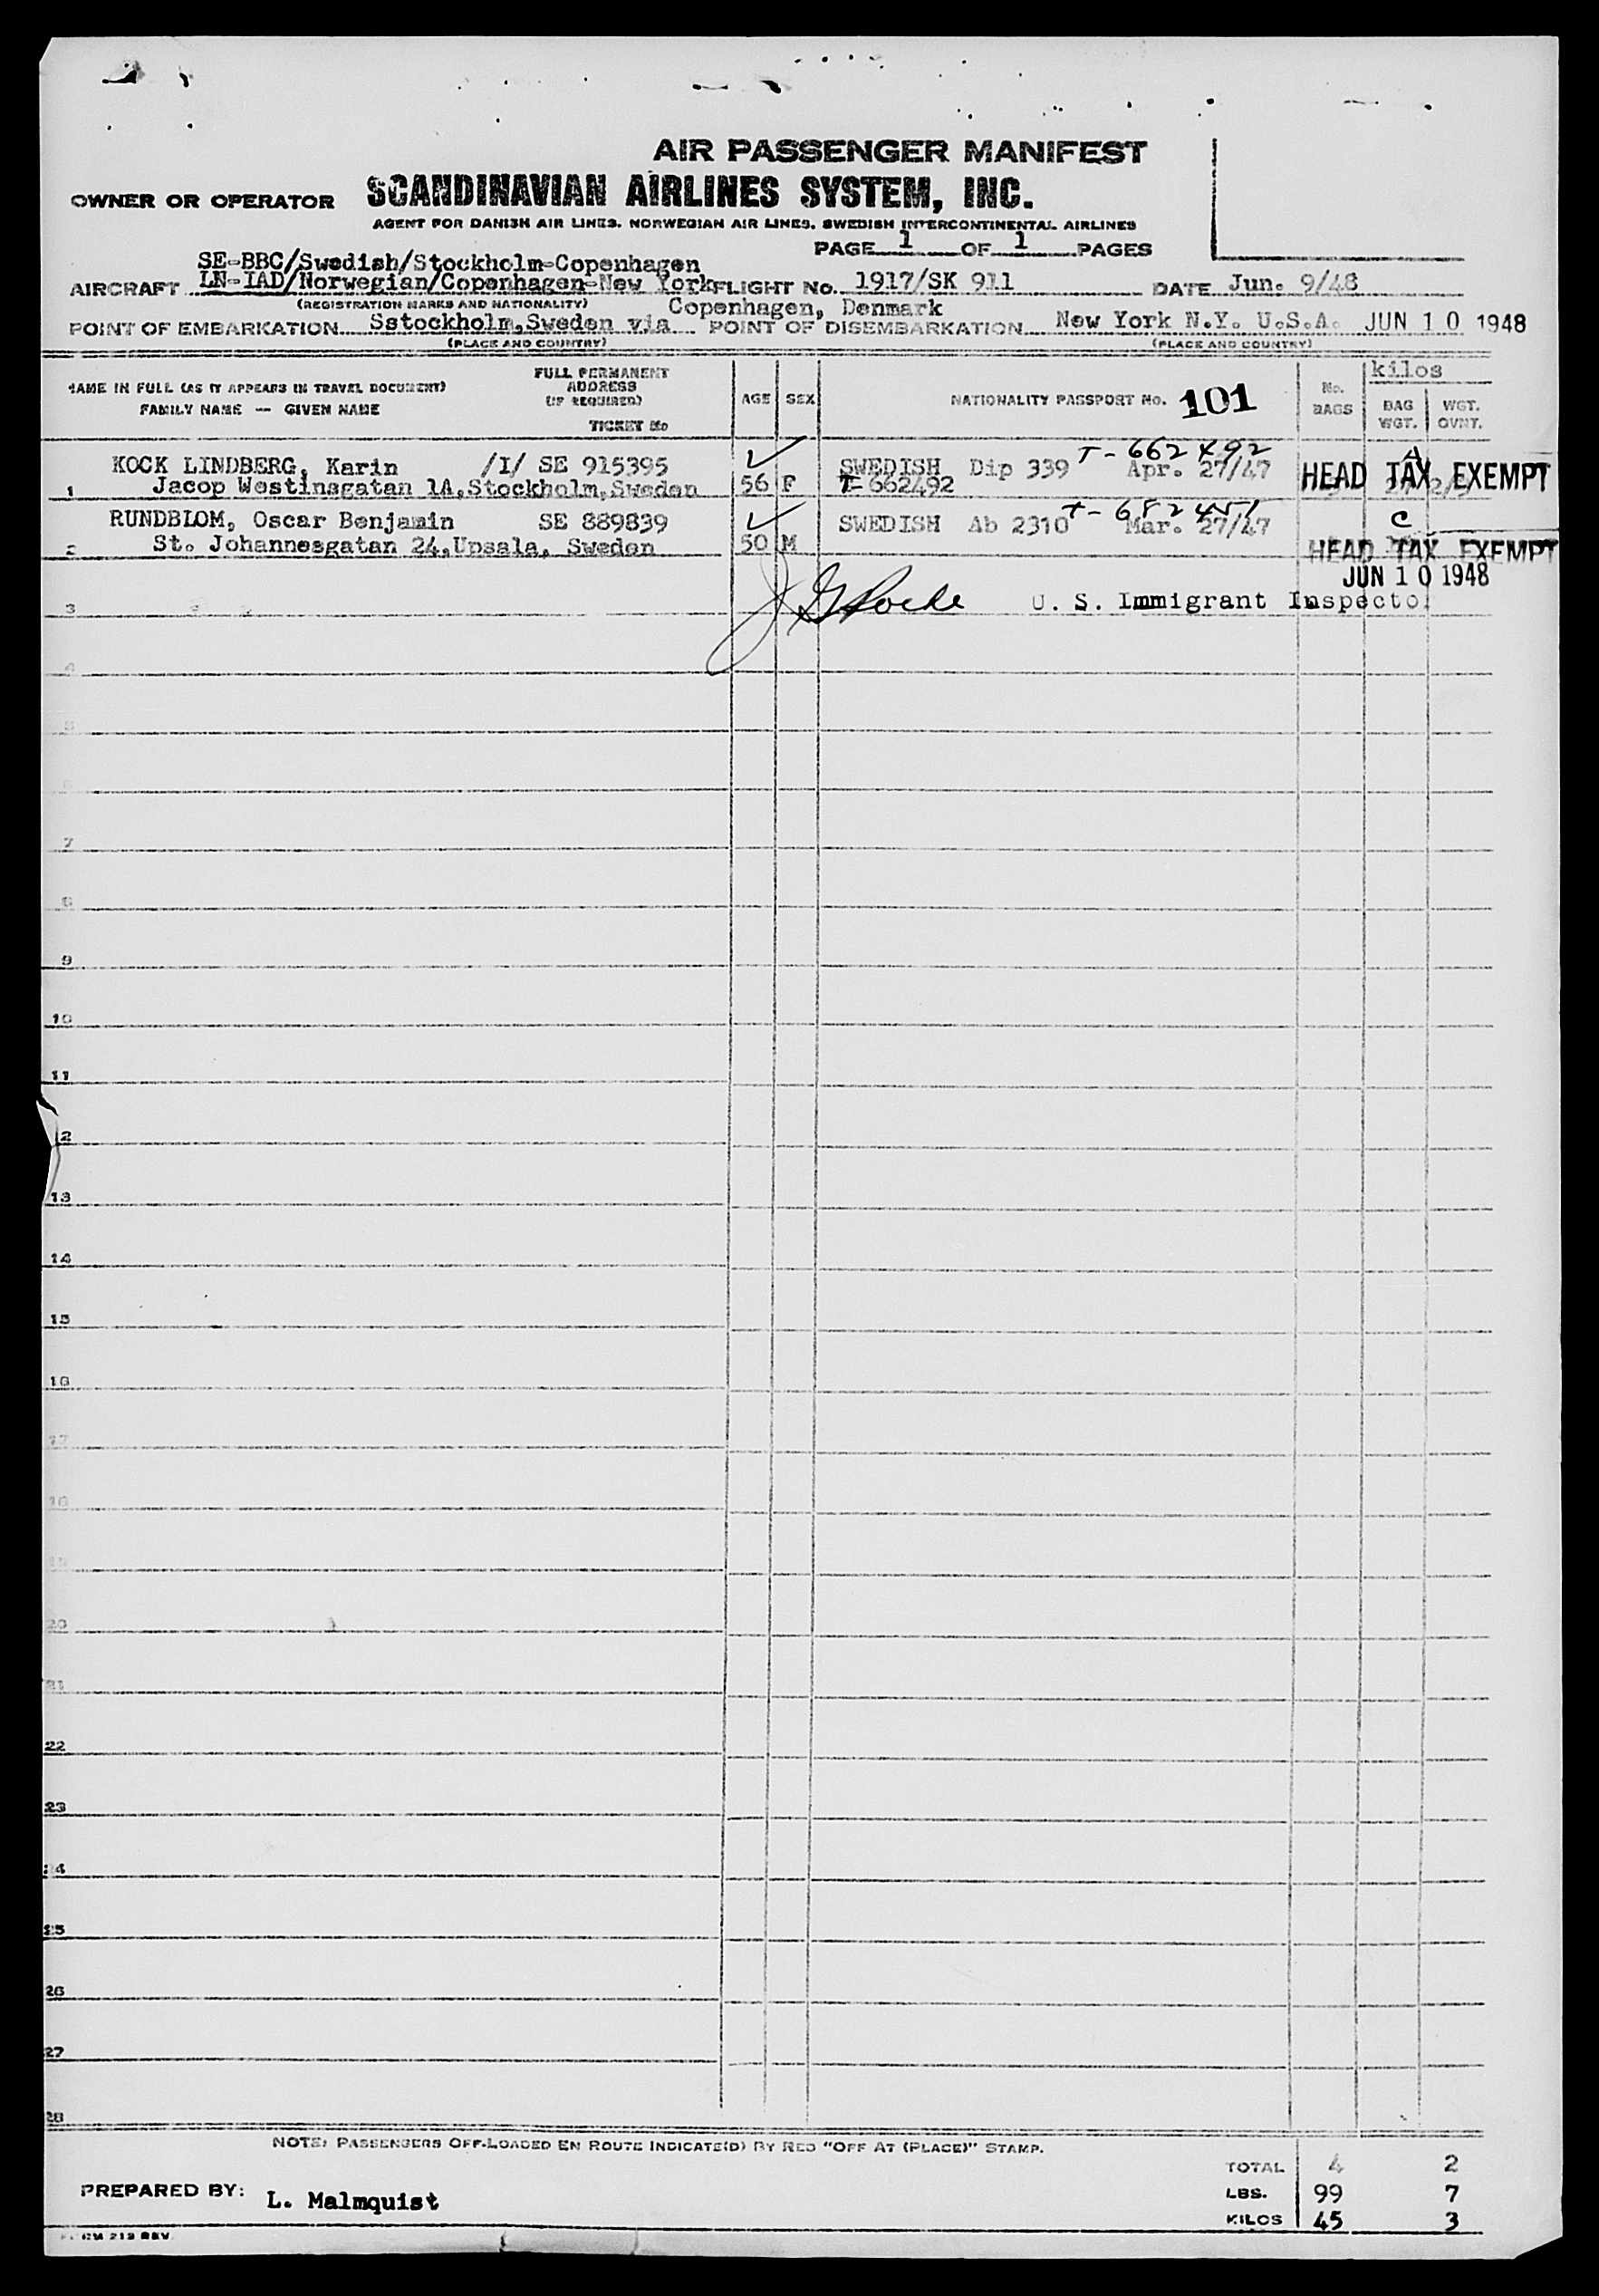 AIR PASSENGER MANIFEST
OWNER OR OPERATOR SCANDINAVIAN AIRLINES SYSTEM, INC.
AGENT FOR DANISH AIR LINES. NORWEGIAN AIR LINES. SWEDISH INTERCONTINENTAL AIRLINES
PAGE 1 OF 1 PAGES
SE-BBC/Swedish/Stockholm-Copenhagen
AIRCRAFT LN-IAD/Norwegian/Copenhagen-New York FLIGHT No. 1917/SK 911 DATE Jun. 9/48
(REGISTRATION MARKS AND NATIONALITY) Copenhagen, Denmark
POINT OF EMBARKATION Sstockholm,Sweden via POINT OF DISEMBARKATION New York N.Y. U.S.A. JUN 10 1948
(PLACE AND COUNTRY) (PLACE AND COUNTRY)
NAME IN FULL (AS IT APPEARS IN TRAVEL DOCUMENT)
FAMILY NAME — GIVEN NAME
FULL PERMANENT
ADDRESS
(IF REQUIRED)
TICKET No
AGE SEX NATIONALITY PASSPORT No. 101 No. BAGS kilos BAG WGT. WGT. OVNT.
KOCK LINDBERG, Karin /I/ SE 915395 SWEDISH Dip 339 T-662492 Apr. 27/47 A HEAD TAX EXEMPT
1 Jacop Westinsgatan 1A,Stockholm,Sweden 56 F T-662492
RUNDBLOM, Oscar Benjamin SE 889839 SWEDISH Ab 2310 Mar. 27/47 C
2 St. Johannesgatan 24,Upsala, Sweden 50 M HEAD TAX EXEMPT
JUN 10 1948
3 U. S. Immigrant Inspector
4
5
6
7
8
9
10
11
12
13
14
15
16
17
18
19
20
21
22
23
24
25
26
27
28
NOTE: PASSENGERS OFF-LOADED EN ROUTE INDICATE(D) BY RED "OFF AT (PLACE)" STAMP.
TOTAL 4 2
PREPARED BY: L. Malmquist LBS. 99 7
KILOS 45 3
FORM 213 REV.